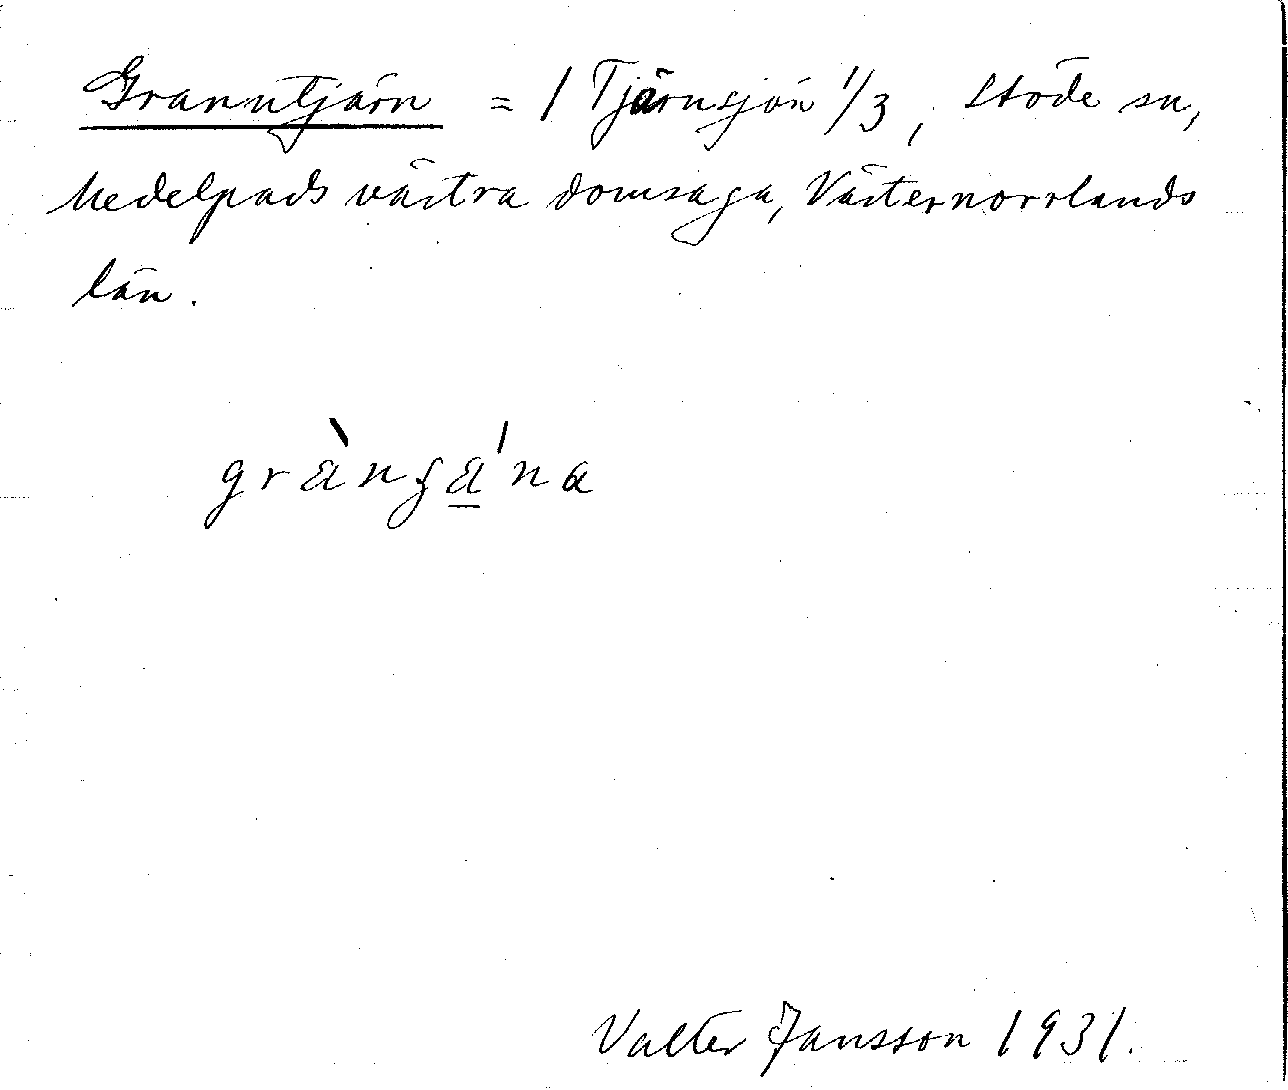 Granntjärn = 1 Tjärnsjön 1/3, Stöde sn,
Medelpads västra domsaga, Västernorrlands
län.
Valter Jansson 1931.